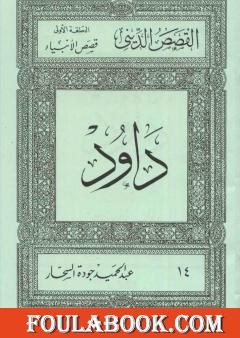 القصص الديني
الحلقة الأولى
قصص الأنبياء
دَاوُدْ
١٤
عبد الحميد جودة السحار
FOULABOOK.COM